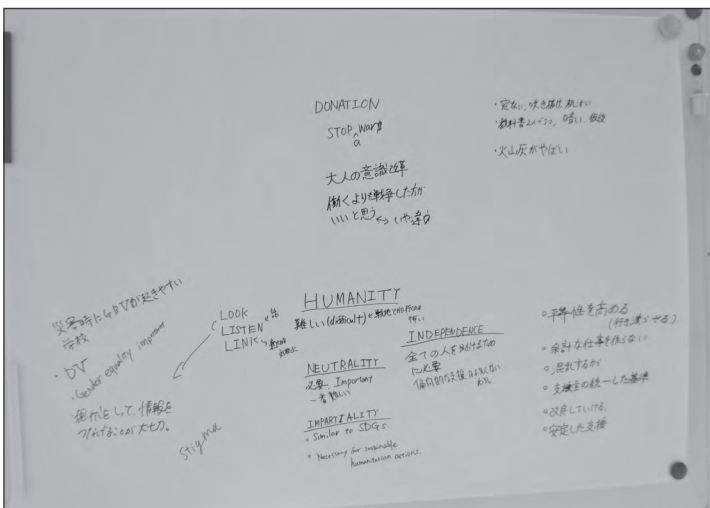 DONATION
STOP a war
大人の意識改革
働くより戦争した方が
いいと思う ↔ いや違う
・窓ない、吹き
・教科書2人で1つ、暗い、仮設
・火山灰がやばい
災害時にGBVが起きやすい
学校
・DV
・Gender equality
をして、情報を
つなげることが大切。
Stigma
LOOK
LISTEN
LINK
HUMANITY
難しい(difficult)
NEUTRALITY
必要、Important
一番難しい
IMPARTIALITY
・Similar to SDGs.
・Necessary for sustainable
humanitarian actions.
INDEPENDENCE
全ての人を助けるため
に必要
偏向的な支援は
・平等性を高める
(行き渡らせる)
・余計な仕事を作らない
・混乱するから
・支援の統一した基準
・改良していける。
・安定した支援